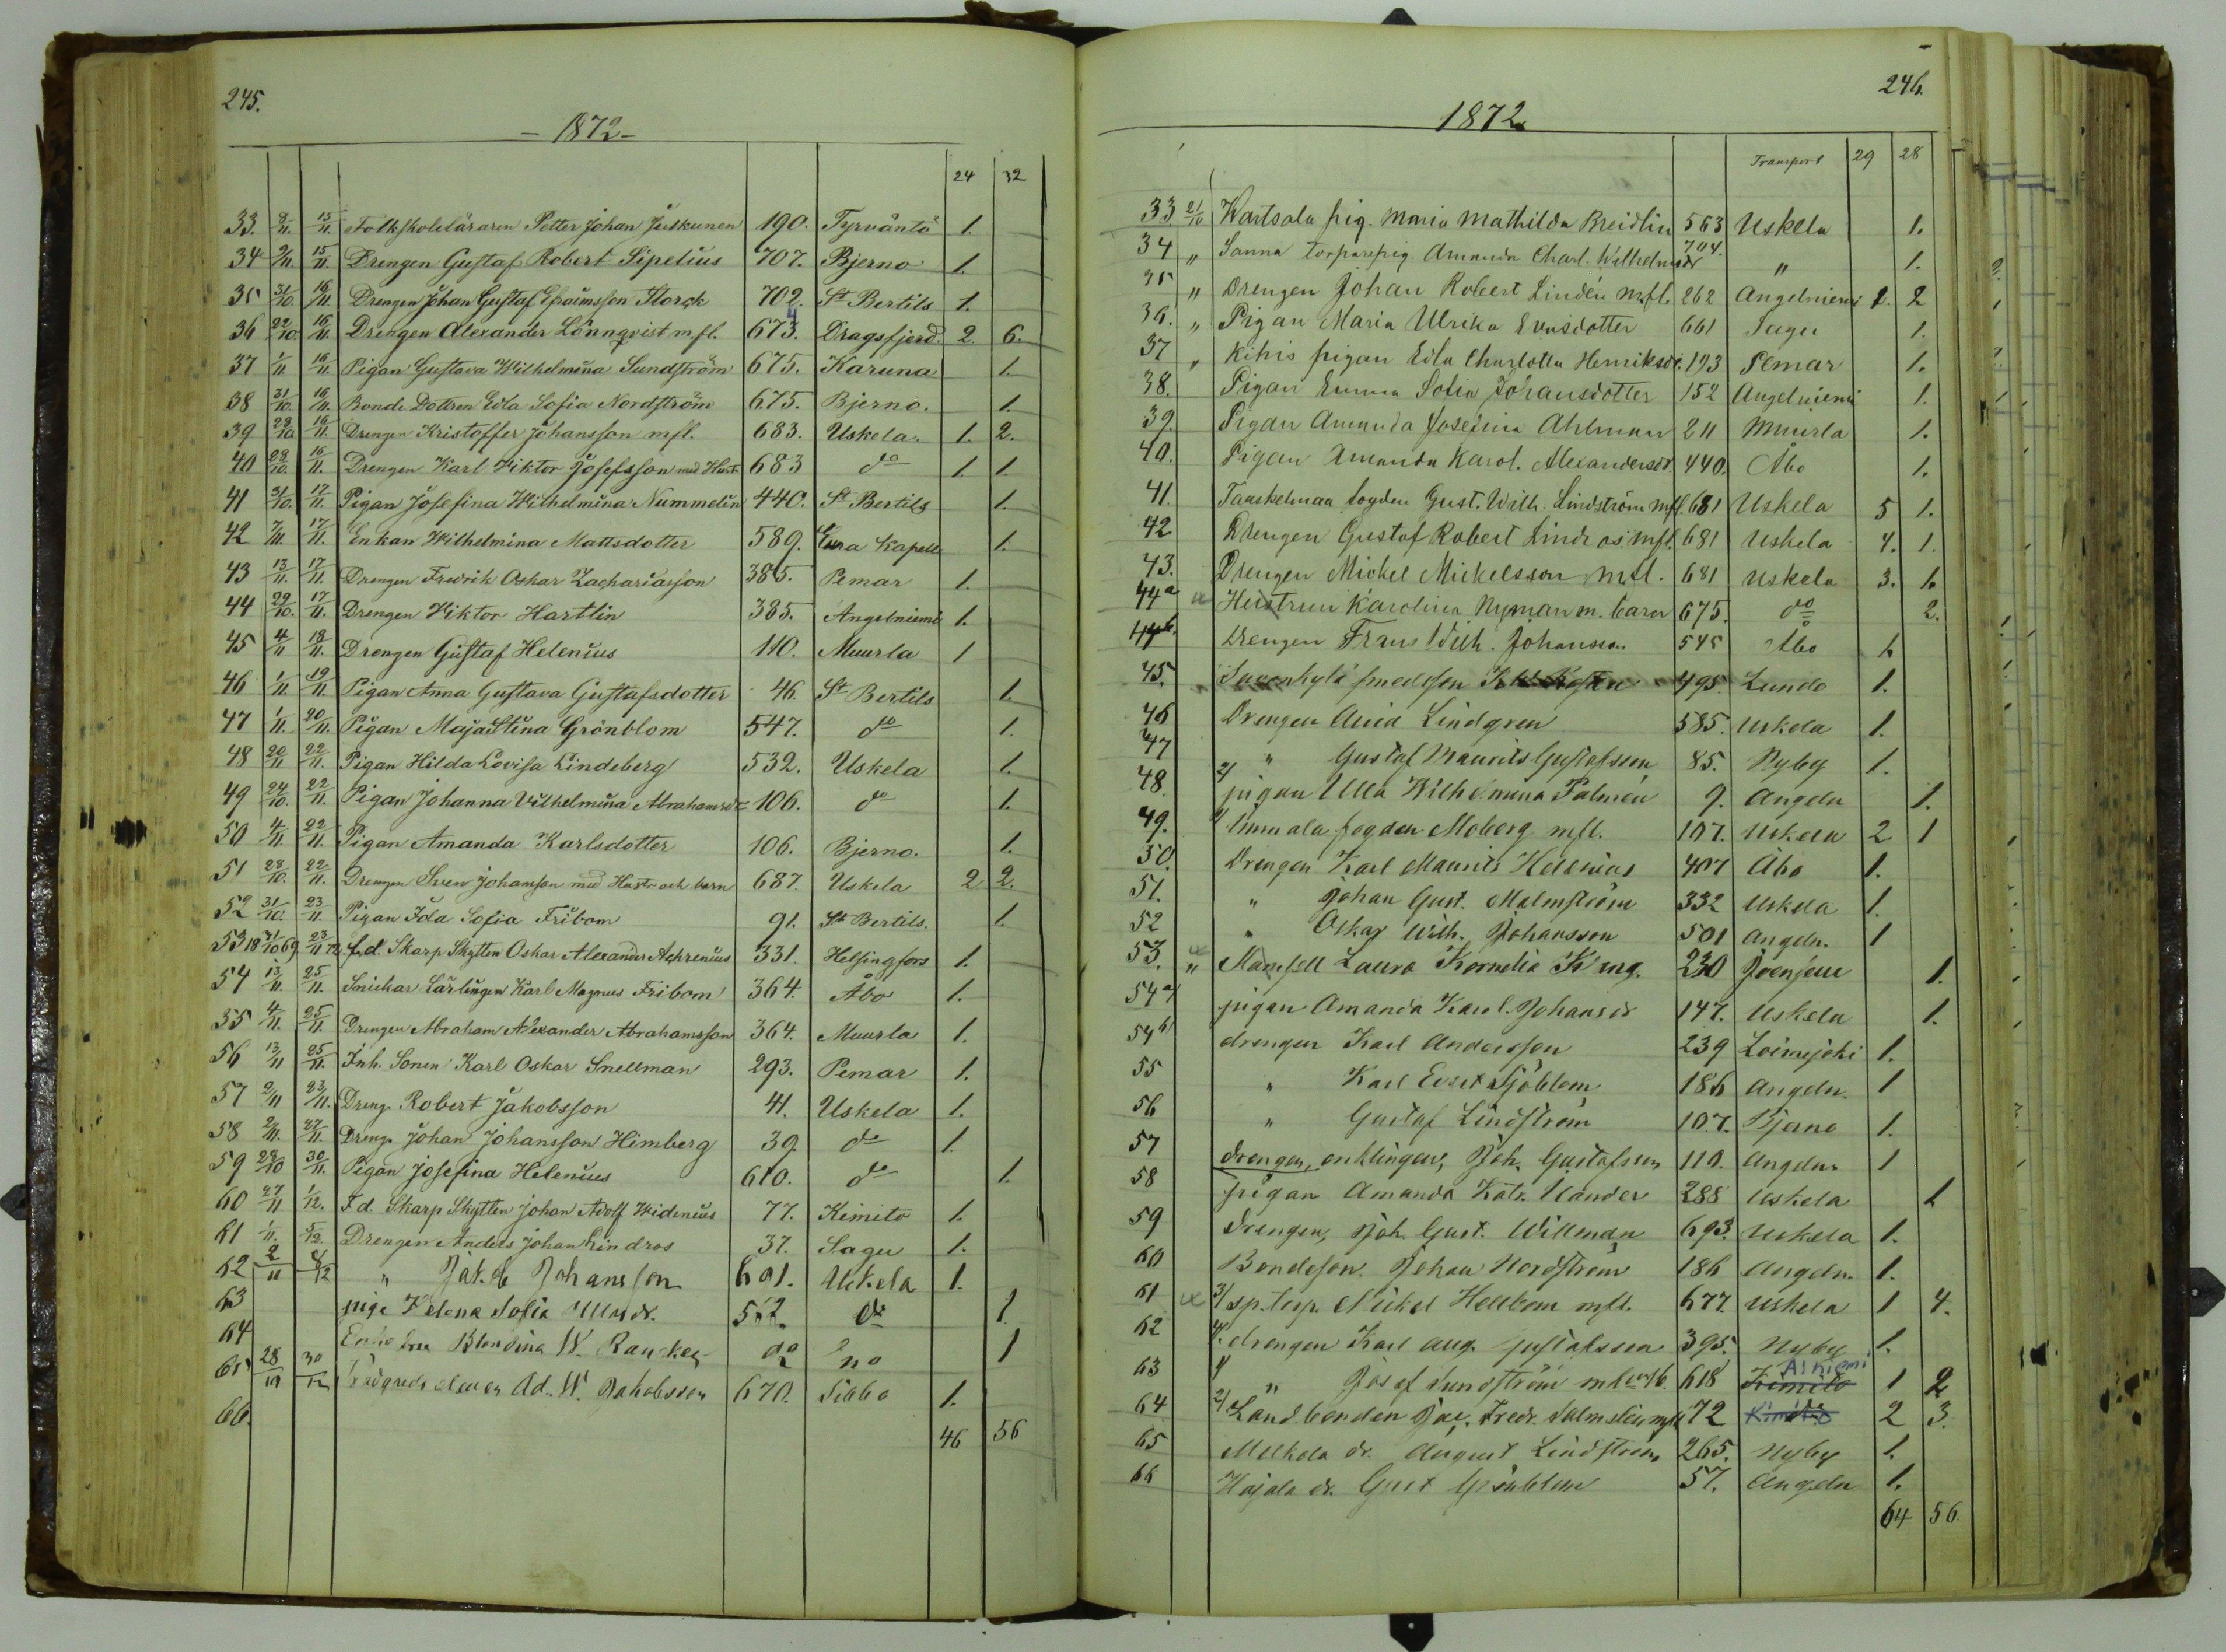 245.
- 1872 -
24 32
33. 8/11. 15/11. Folkskoleläraren Petter Johan Juskunen 190. Tyrväntö 1.
34 9/11. 15/11. Drengen Gustaf Robert Sipelius 707. Bjerno 1.
35 31/10. 16/11. Drengen Johan Gustaf Efraimsson Storck 702. St Bertils 1.
36 22/10. 16/11. Drengen Alexander Lönnqvist mfl. 673. 4 Dragsfjerd. 2. 6.
37 1/11 16/11. Pigan Gustava Wilhelmina Sundström 675. Karuna 1.
38 31/10. 16/11. Bonde Dottren Edla Sofia Nordström 675. Bjerno. 1.
39 28/10. 16/11. Drengen Kristoffer Johansson mfl. 683. Uskela. 1. 2.
40 28/10. 16/11. Drengen Karl Viktor Josefsson med Hustr. 683 do 1. 1.
41 31/10. 17/11. Pigan Josefina Wilhelmina Nummelin 440. St Bertils 1.
42 7/11. 17/11. Enkan Wilhelmina Mattsdotter 589. Kapell 1.
43 13/11. 17/11. Drengen Fredrik Oskar Zachariasson 385. Pemar 1.
44 29/10. 17/11. Drengen Viktor Hartlin 385. Angelniemi 1.
45 4/11 18/11. Drengen Gustaf Helenius 110. Muurla 1
46 1/11. 19/11. Pigan Anna Gustava Gustafsdotter 46. St Bertils 1.
47 1/11. 20/11. Pigan Maja Stina Grönblom 547. do 1.
48 20/11 22/11. Pigan Hilda Lovisa Lindeberg 532. Uskela 1.
49 24/10. 22/11. Pigan Johanna Vilhelmina Abrahamsdr 106. do 1.
50 4/11 22/11. Pigan Amanda Karlsdotter 106. Bjerno. 1.
51 28/10. 22/11. Drengen Sven Johansson med Hustr och barn 687. Uskela 2 2.
52 31/10. 23/11 Pigan Ida Sofia Fribom 91. St Bertils. 1.
53 18 31/10 69 23/11 72. f.d. Skarp Skytten Oskar Alexander Achrenius 331. Helsingfors 1.
54 13/11. 25/11. Snickar Lärlingen Karl Magnus Fribom 364. Åbo 1.
55 4/11. 25/11. Drengen Abraham Alexander Abrahamsson 364. Muurla 1.
56 13/11 25/11. Inh. Sonen Karl Oskar Snellman 293. Pemar 1.
57 2/11 23/11. Dreng. Robert Jakobsson 41. Uskela 1.
58 2/11. 27/11. Dreng. Johan Johansson Himberg 39. do 1.
59 29/10 30/11. Pigan Josefina Helenius 610. do 1.
60 27/11 1/12. F.d. Skarp Skytten Johan Adolf Widenius 77. Kimito 1.
61 1/11. 5/12. Drengen Anders Johan Lindros 37. Sagu 1.
62 2/11 8/12 " Jakob Johansson 691. Uskela 1.
63 piga Helena Sofia 562. do 1
64 Blondina W. do 1
65 28/11 30/12 Ad. W. Jakobsson 670. Sibbo 1.
66.
46 56
246.
1872
Transport 29 28
33. 21/10 Wartsala pig. Maria Mathilda Breidlin 563 Uskela 1.
34 " Sanna torparepig. Amanda Charl. Wilhelmsdr 704. " 1.
35 " Drengen Johan Robert Lindén mfl. 262 Angelniemi 2. 2
36. " Pigan Maria Ulrika Evasdotter 661 Sagu 1.
37 " Kihis pigan Edla Charlotta Henriksdr. 193 Pemar 1.
38. Pigan Emma Sofia Johansdotter 152 Angelniemi 1.
39. Pigan Amanda Josefina Ahlman 211 Muurla 1.
40. Pigan Amanda Karol. Alexandersdr. 440. Åbo 1.
41. fogden Gust. Wilh. Lindström mfl. 681 Uskela 5 1.
42 Drengen Gustaf Robert Lindros mfl. 681 Uskela 4. 1.
43. Drengen Mickel Mickelsson mfl. 681 Uskela 3. 1.
44a Hustrun Karolina Nyman m. barn 675. do 2.
44b. Drengen Frans Wilh. Johansson 545 Åbo 1.
45. 495. Lundo 1.
46 Drengen Lindgren 585. Uskela 1.
47 " Gustaf Maurits Gustafsson 85. Nyby 1.
48. 2/ pigan Ulla Wilhelmina Palmén 9. Angeln 1.
49. fogden Moberg mfl. 107. Uskela 2 1
50. Drengen Karl Maurits Helenius 407 Åbo 1.
51. " Johan Gust. Malmström 332 Uskela 1.
52 " Oskar Wilh. Johansson 501 Angeln. 1
53. " Mamsell Laura Kornelia King. 230 Joensuu 1.
54a/ pigan Amanda Karol. Johansdr 147. Uskela 1.
54b/ drengen Karl Andersson 239 Loimijoki 1.
55 " Karl Evert Sjöblom 186 Angeln. 1
56 " Gustaf Lindström 107. Bjerno 1.
57 drengen, enklingen, Joh. Gustafsson 110. Angeln. 1
58 pigan Amanda Katr. Uander 288 Uskela 1
59 drengen, Joh. Gust. Willman 693. Uskela 1.
60 Bondeson. Johan Nordström 186 Angeln. 1.
61 3/ sp. torp. Mickel Hellbom mfl. 677. Uskela 1 4.
62 drengen Karl Aug. Gustafsson 395. Nyby 1.
63 " Josef Sundström 618 Kimito 1 2
64 2/ Landbonden Jac. Fredr. Salmstén mfl 72 Kimito 2 3.
65 Melkola dr. August Lindström 265. Nyby 1.
66 Hajala dr. Gust 57. Angeln 1.
64 56.